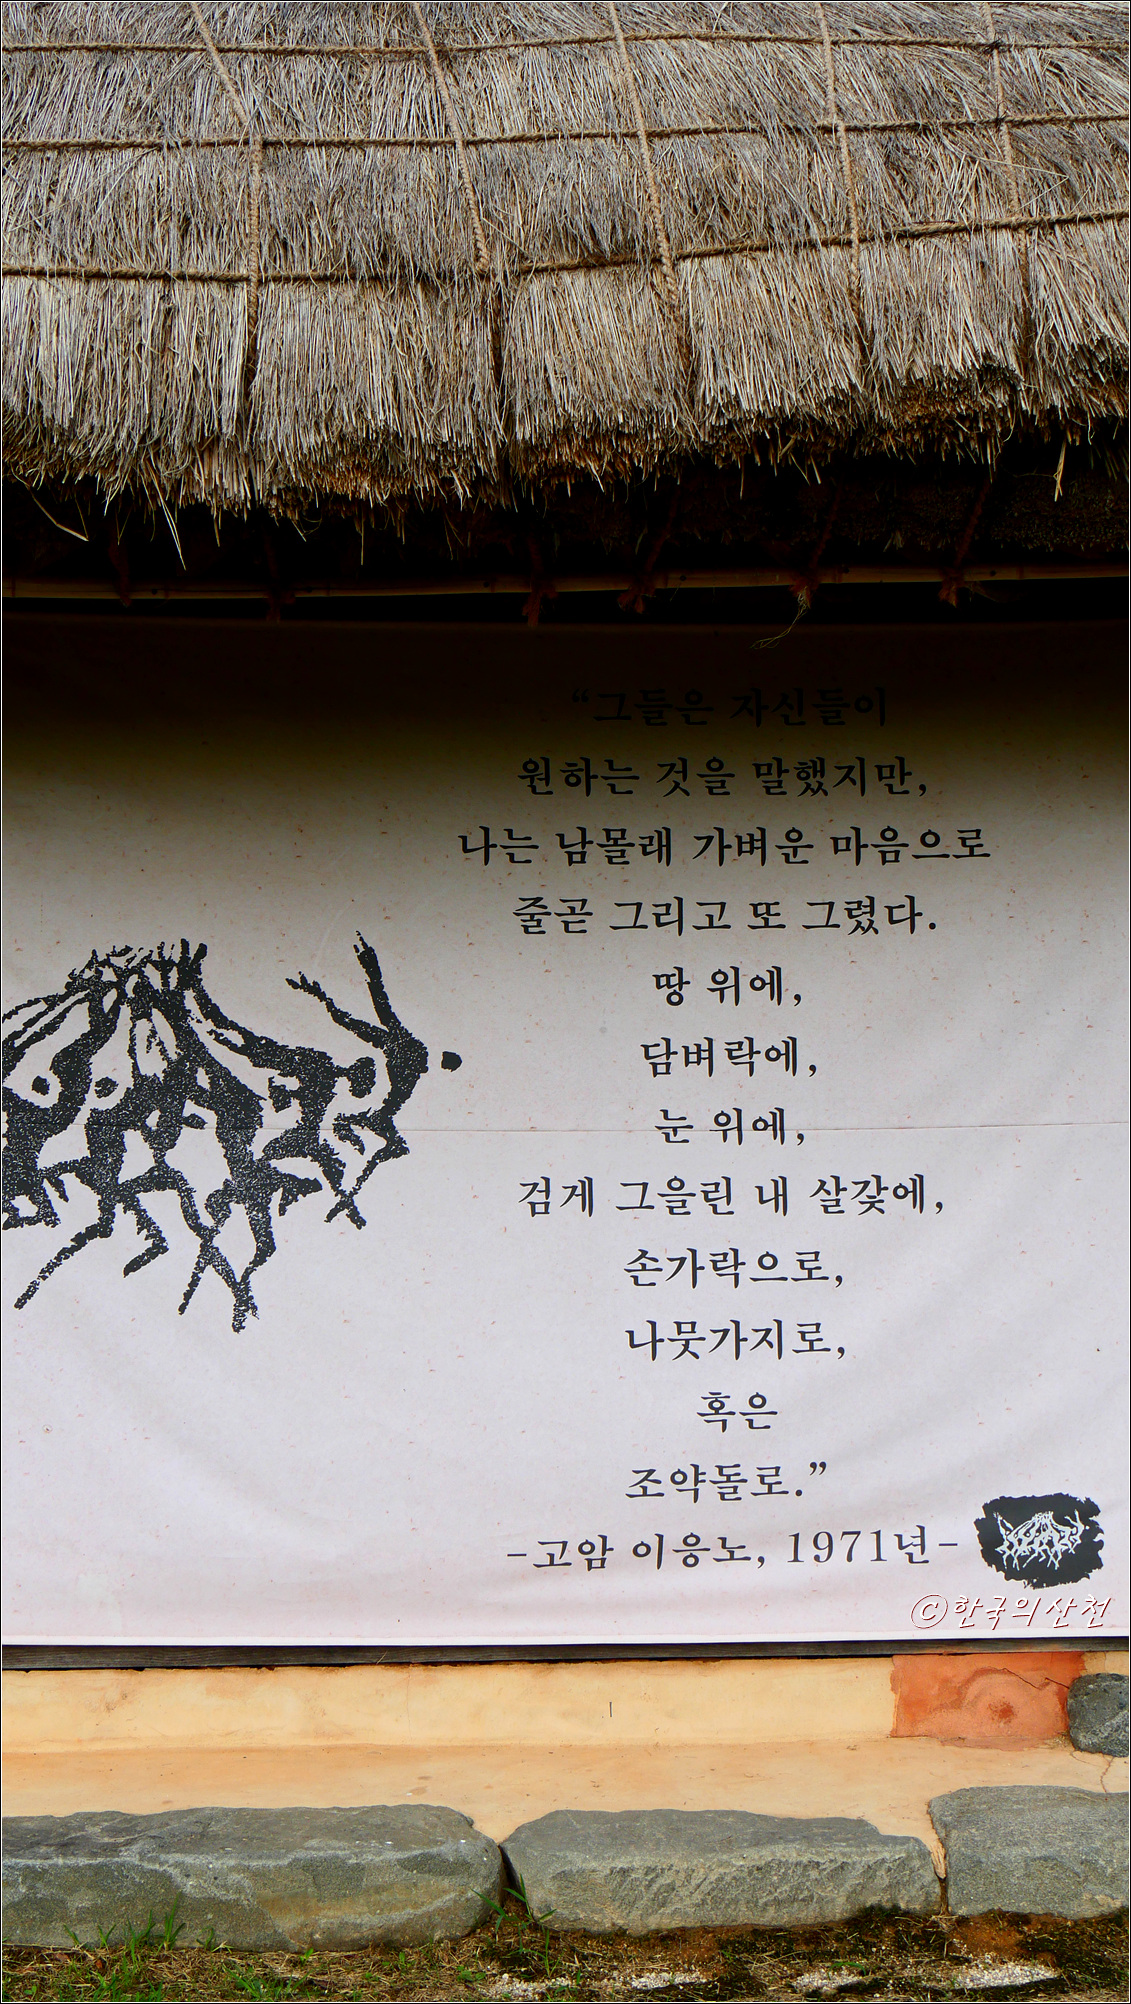 “그들은 자신들이
원하는 것을 말했지만,
나는 남몰래 가벼운 마음으로
줄곧 그리고 또 그렸다.
땅 위에,
담벼락에,
눈 위에,
검게 그을린 내 살갗에,
손가락으로,
나뭇가지로,
혹은
조약돌로.”
-고암 이응노, 1971년-
©한국의산천